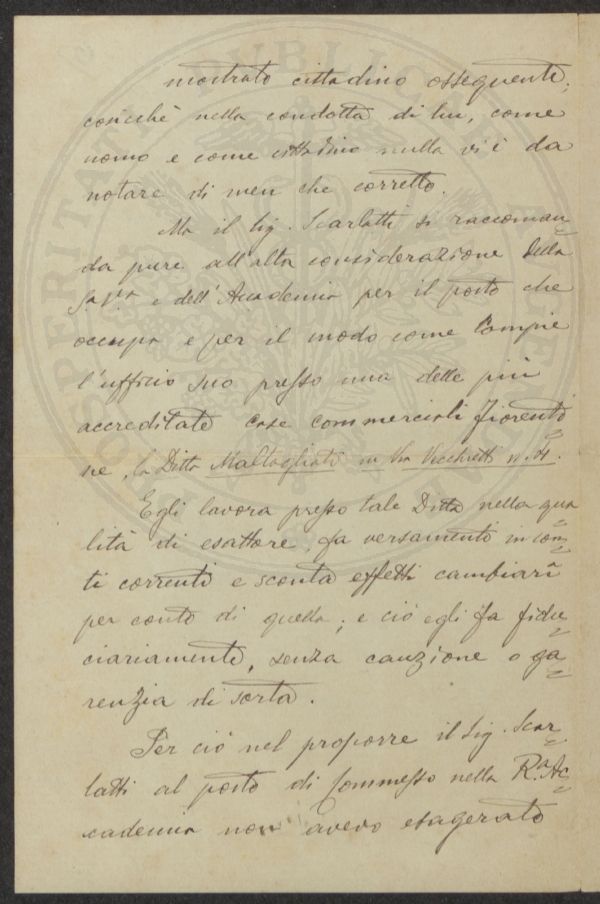 mostrato cittadino ossequente;
cosicchè nella condotta di lui, come
uomo e come cittadino nulla vi è da
notare di men che corretto.
Ma il Sig. Scarlatti si raccoman
da pure all'alta considerazione della
S.a V.a e dell'Accademia per il posto che
occupa e per il modo come compie
l'ufficio suo presso una delle più
accreditate case commerciali fiorenti
ne, la Ditta Maltagliati in Via Vecchietti n. 4.
Egli lavora presso tale Ditta nella qua
lità di esattore, fa versamenti in con
ti correnti e sconta effetti cambiari
per conto di quella; e ciò egli fa fidu
ciariamente, senza cauzione o ga
renzia di sorta.
Per ciò nel proporre il Sig. Scar
latti al posto di Commesso nella R.a Ac
cademia non avevo esagerato
OSPERITA PUBLICAE